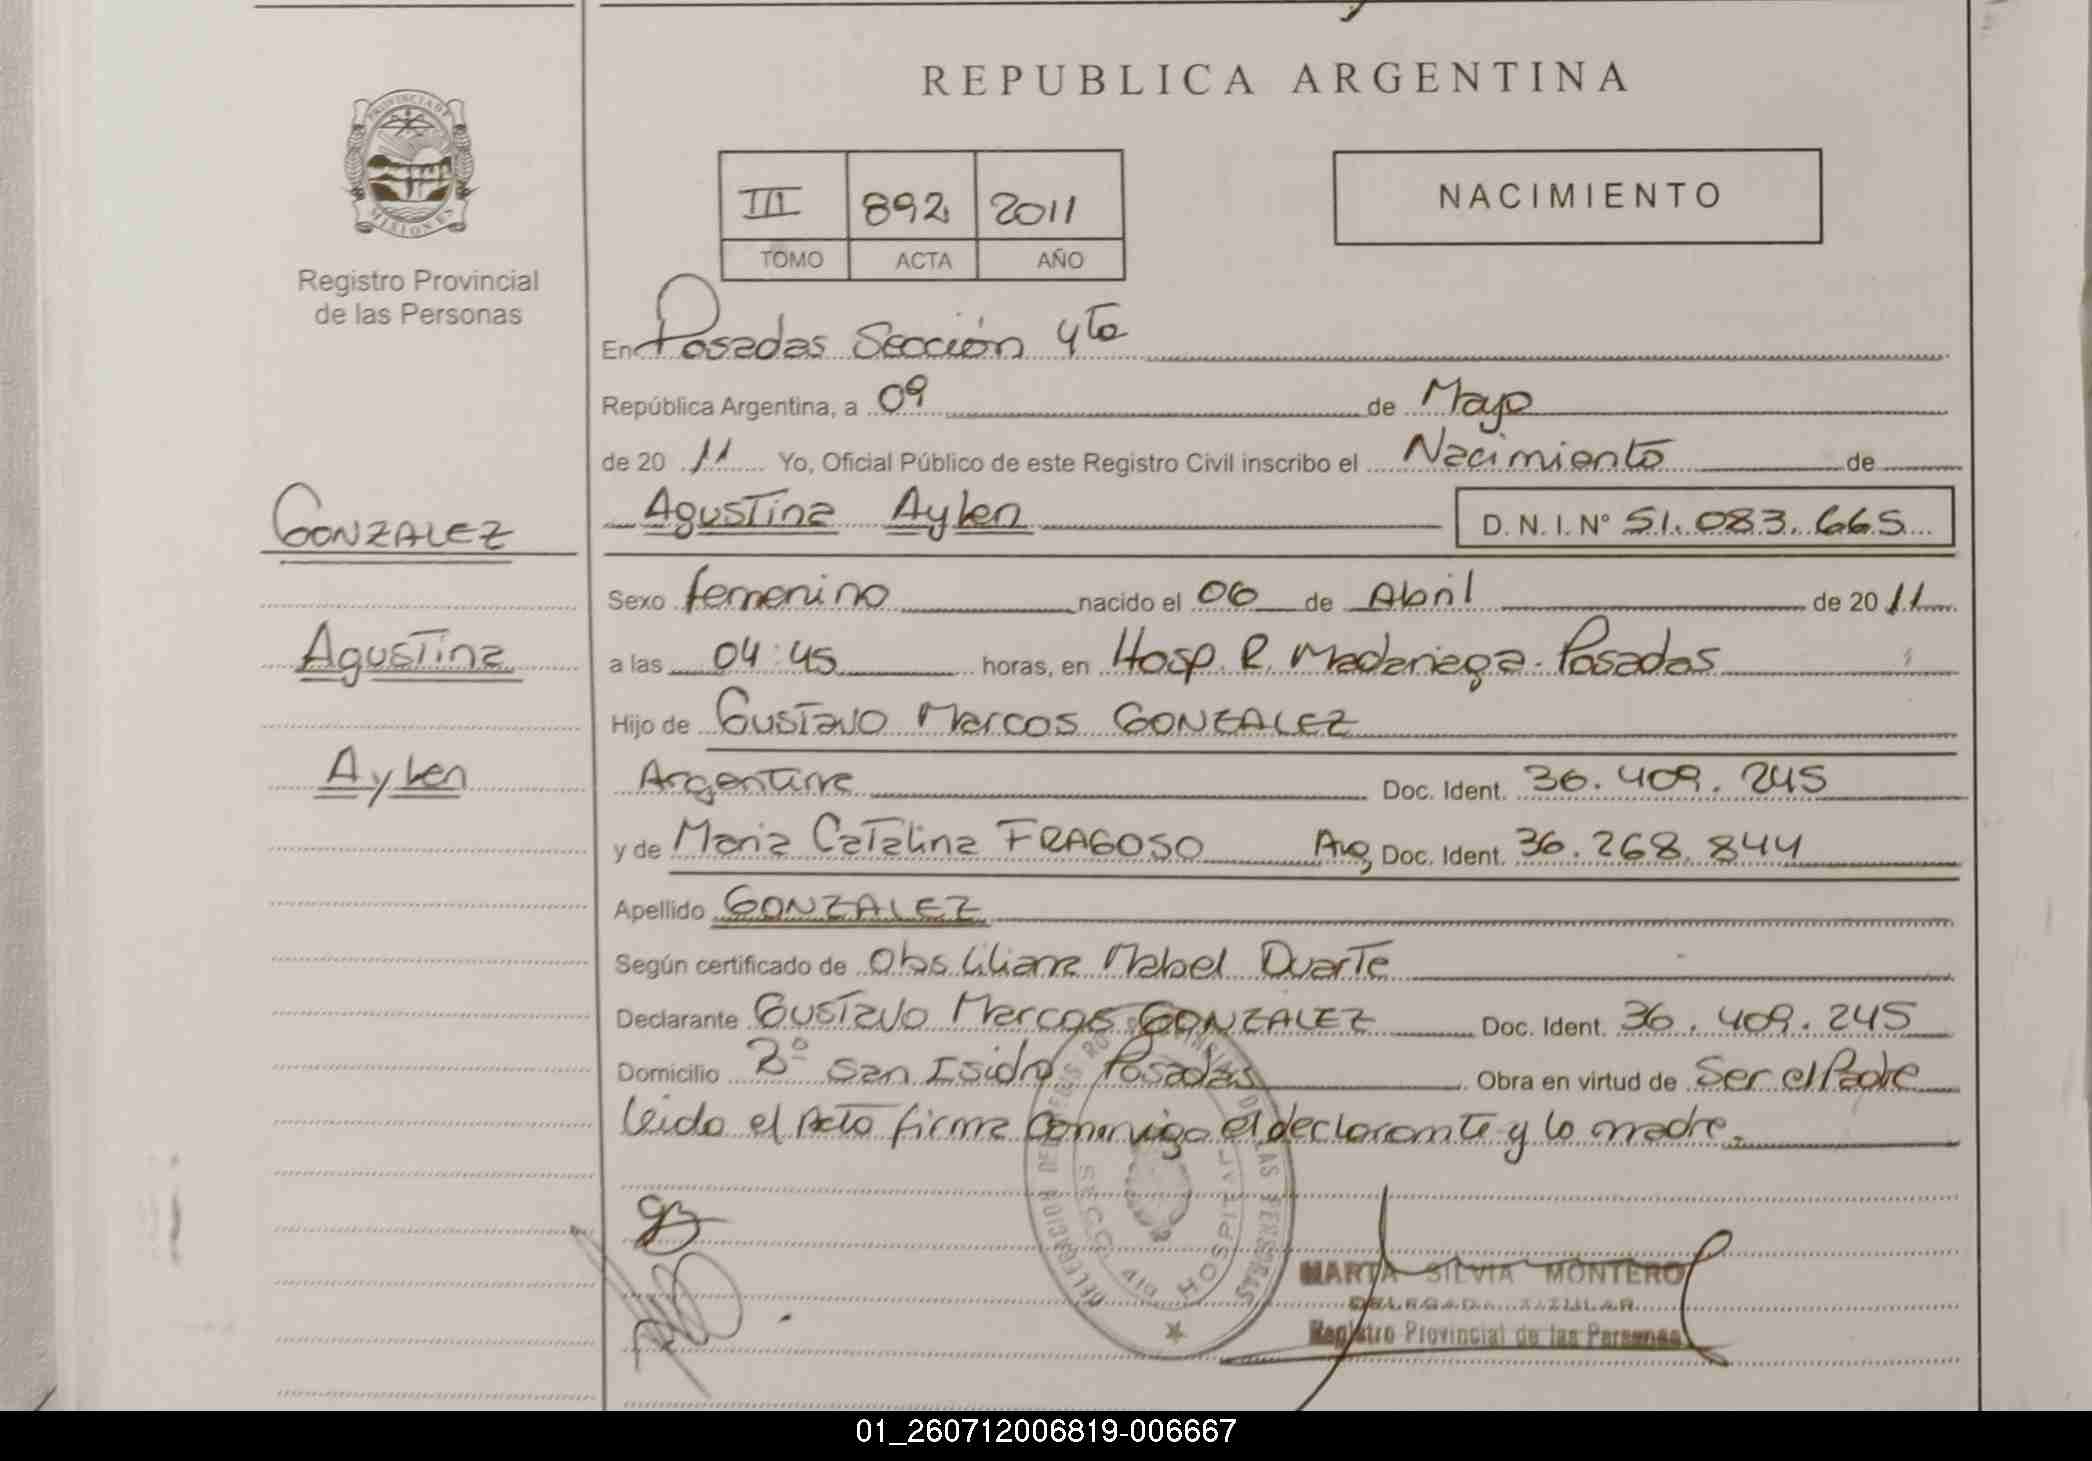 REPUBLICA ARGENTINA
PROVINCIA DE
MISIONES
Registro Provincial
de las Personas
III 892 2011
TOMO ACTA AÑO
NACIMIENTO
En Posadas Sección 4ta
República Argentina, a 09 de Mayo
de 20 11 Yo, Oficial Público de este Registro Civil inscribo el Nacimiento de
Agustina Aylen D. N. I. N° 51.083.665
GONZALEZ
Agustina
Aylen
Sexo femenino nacido el 06 de Abril de 20 11
a las 04:45 horas, en Hosp. R. Madariaga. Posadas
Hijo de Gustavo Marcos GONZALEZ
Argentina Doc. Ident. 36.409.245
y de Maria Catalina FRAGOSO Arg, Doc. Ident. 36.268.844
Apellido GONZALEZ
Según certificado de Obs Liliana Mabel Duarte
Declarante Gustavo Marcos GONZALEZ Doc. Ident. 36.409.245
Domicilio Bº San Isidro Posadas Obra en virtud de Ser el Padre
Leido el Acta firma conmigo el declarante y la madre.
MARTA SILVIA MONTERO
DELEGADA TITULAR
Registro Provincial de las Personas
01_260712006819-006667